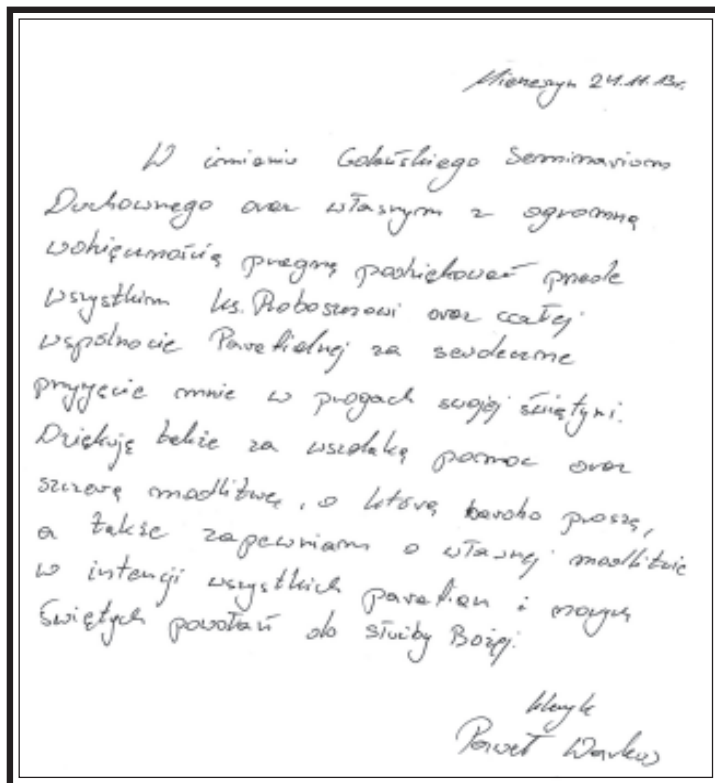 24.11.13r.
W imieniu Gdańskiego Seminarium
Duchownego oraz własnym z ogromną
wdzięcznością pragnę podziękować przede
wszystkim ks. Proboszczowi oraz całej
wspólnocie Parafialnej za serdeczne
przyjęcie mnie w progach swojej świętyni.
Dziękuję także za wszelaką pomoc oraz
szczerą modlitwę, o którą bardzo proszę,
a także zapewniam o własnej modlitwie
w intencji wszystkich parafian i nowych
świętych powołań do służby Bożej.
kleryk
Paweł